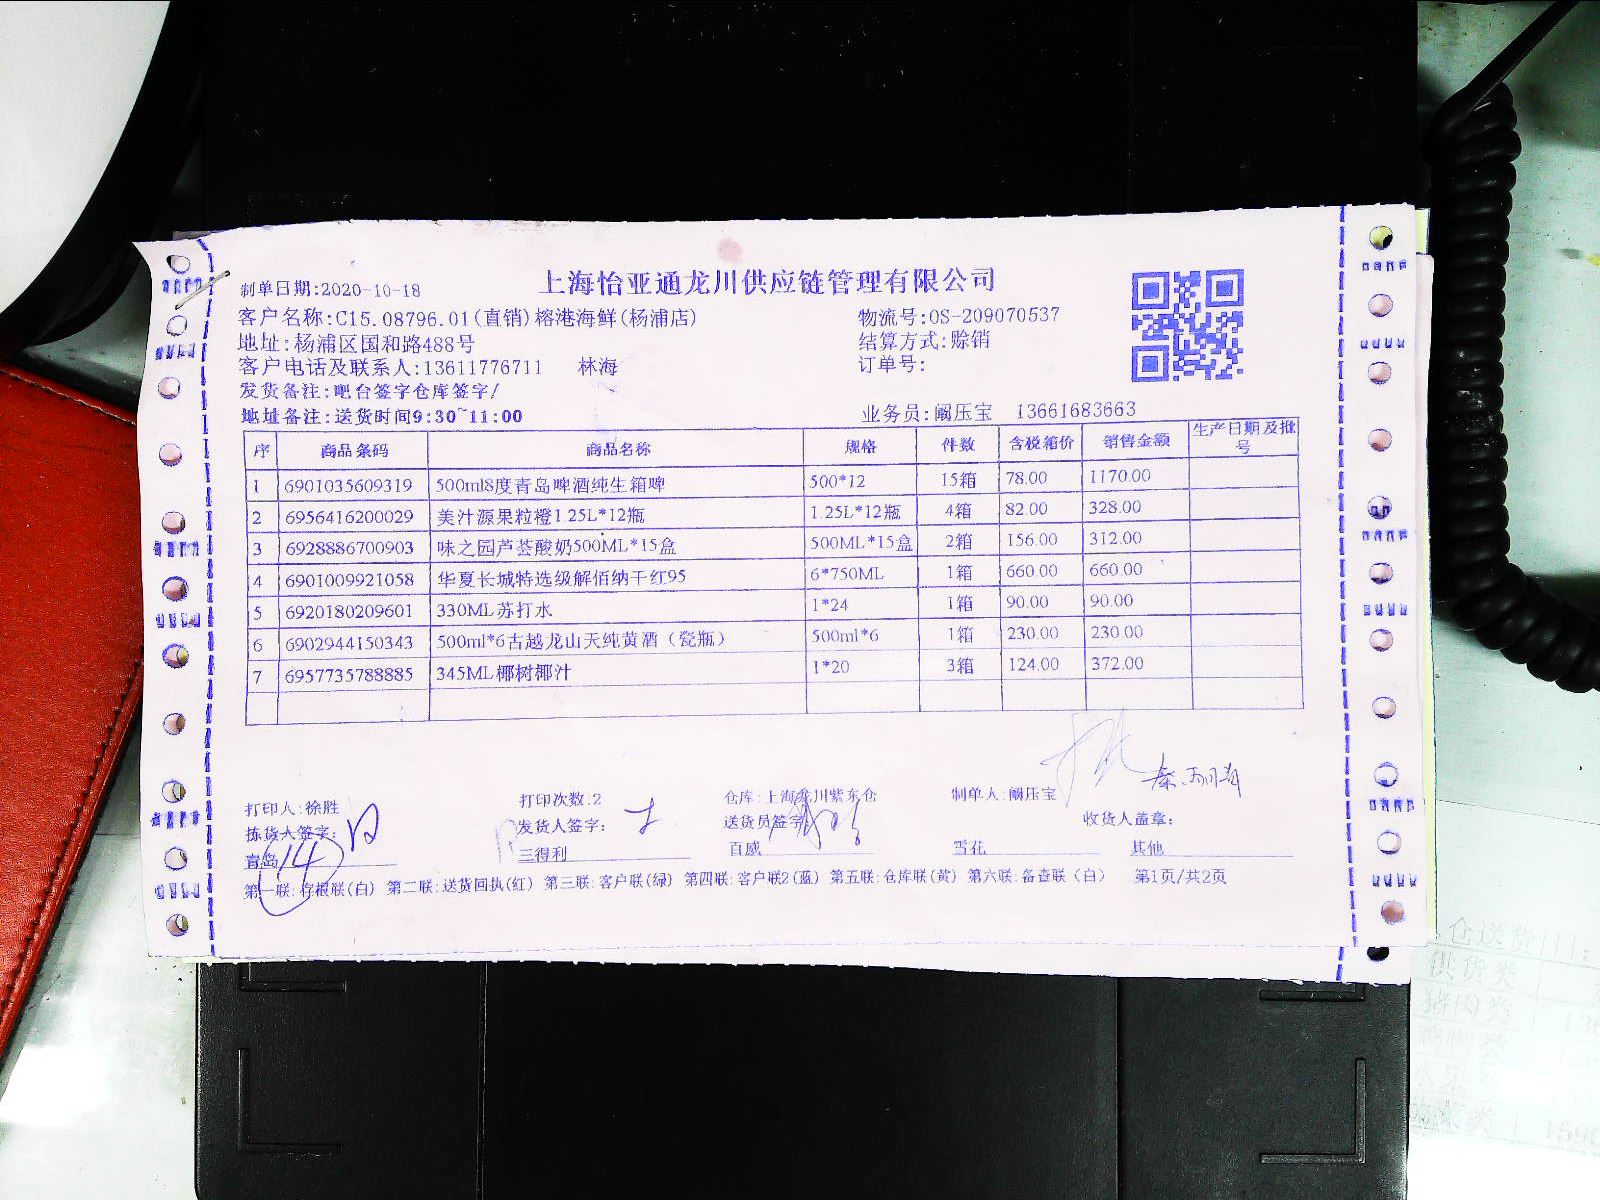 上海怡亚通龙川供应链管理有限公司
制单日期:2020-10-18
客户名称:C15.08796.01(直销)榕港海鲜(杨浦店) 物流号:OS-209070537
地址:杨浦区国和路488号 结算方式:赊销
客户电话及联系人:13611776711 林海 订单号:
发货备注:吧台签字仓库签字/
地址备注:送货时间9:30~11:00 业务员:阚压宝 13661683663
序 商品条码 商品名称 规格 件数 含税箱价 销售金额 生产日期及批号
1 6901035609319 500ml8度青岛啤酒纯生箱啤 500*12 15箱 78.00 1170.00
2 6956416200029 美汁源果粒橙1.25L*12瓶 1.25L*12瓶 4箱 82.00 328.00
3 6928886700903 味之园芦荟酸奶500ML*15盒 500ML*15盒 2箱 156.00 312.00
4 6901009921058 华夏长城特选级解佰纳干红95 6*750ML 1箱 660.00 660.00
5 6920180209601 330ML苏打水 1*24 1箱 90.00 90.00
6 6902944150343 500ml*6古越龙山天纯黄酒（瓷瓶） 500ml*6 1箱 230.00 230.00
7 6957735788885 345ML椰树椰汁 1*20 3箱 124.00 372.00
打印人:徐胜 打印次数:2 仓库:上海龙川紫东仓 制单人:阚压宝
拣货人签字: 发货人签字: 送货员签字: 收货人盖章:
青岛 14 三得利 百威 雪花 其他
第一联:存根联(白) 第二联:送货回执(红) 第三联:客户联(绿) 第四联:客户联2(蓝) 第五联:仓库联(黄) 第六联:备查联（白） 第1页/共2页
供货类
猪肉类